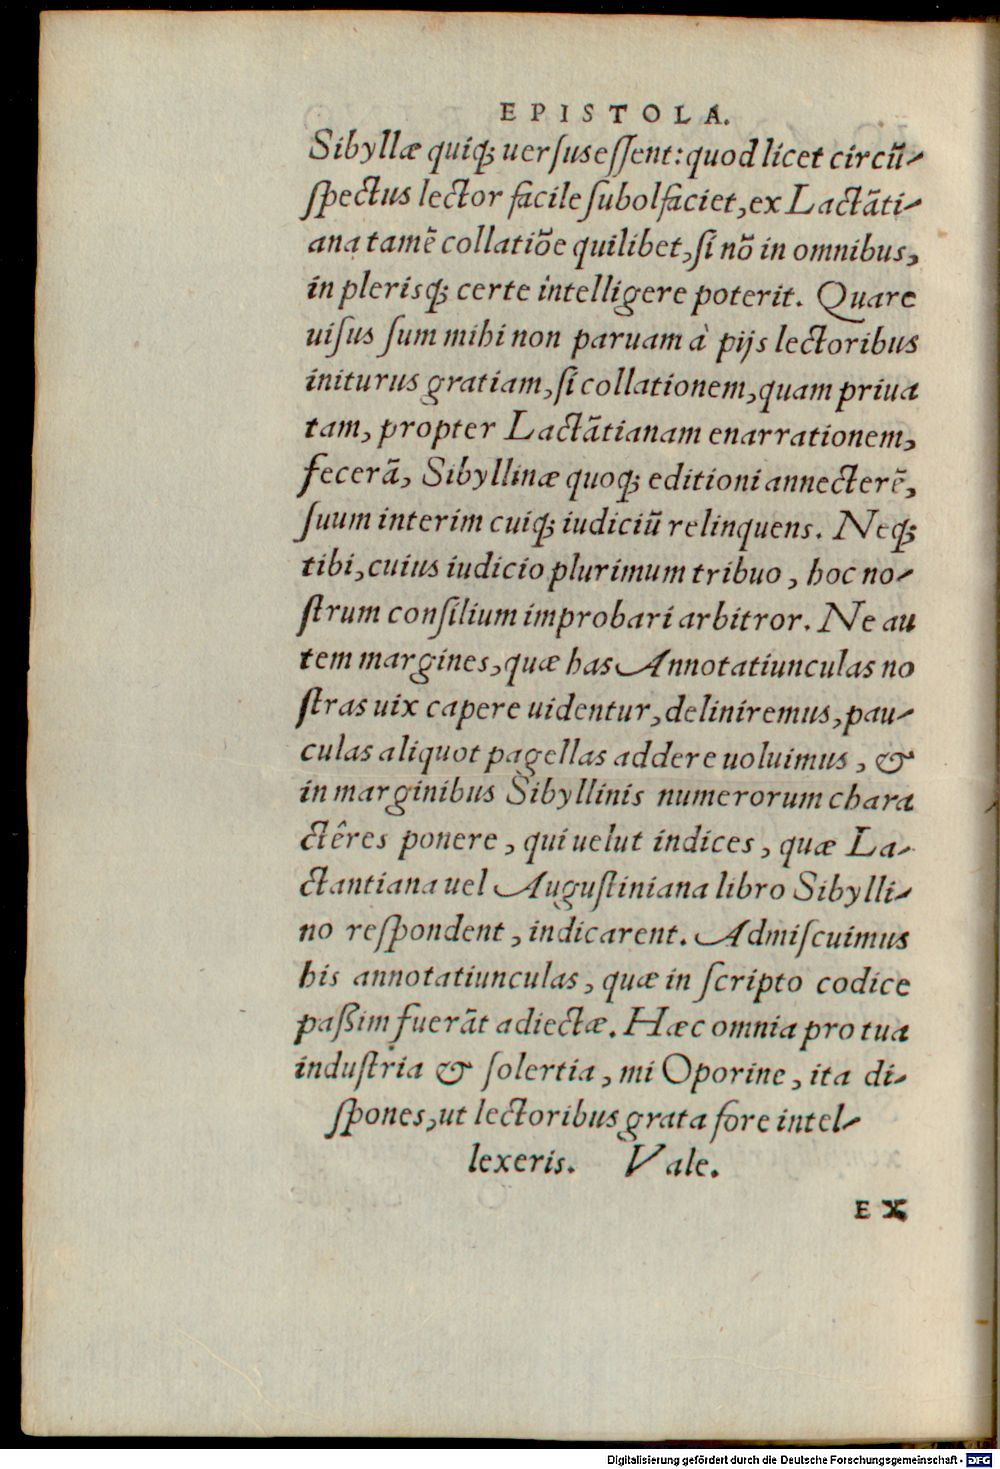 EPISTOLA.
Sibyllæ quiq; uersus essent: quod licet circũ-
spectus lector facile subolfaciet, ex Lactãti-
ana tamẽ collatiõe quilibet, si nõ in omnibus,
in plerisq; certe intelligere poterit. Quare
uisus sum mihi non paruam à pijs lectoribus
initurus gratiam, si collationem, quam priua
tam, propter Lactãtianam enarrationem,
fecerã, Sibyllinæ quoq; editioni annecterẽ,
suum interim cuiq; iudiciũ relinquens. Neq;
tibi, cuius iudicio plurimum tribuo, hoc no-
strum consilium improbari arbitror. Ne au
tem margines, quæ has Annotatiunculas no
stras uix capere uidentur, deliniremus, pau-
culas aliquot pagellas addere uoluimus, &
in marginibus Sibyllinis numerorum chara
ctêres ponere, qui uelut indices, quæ La-
ctantiana uel Augustiniana libro Sibylli-
no respondent, indicarent. Admiscuimus
his annotatiunculas, quæ in scripto codice
paßim fuerãt adiectæ. Hæc omnia pro tua
industria & solertia, mi Oporine, ita di-
spones, ut lectoribus grata fore intel-
lexeris. Vale.
EX
Digitalisierung gefördert durch die Deutsche Forschungsgemeinschaft - DFG